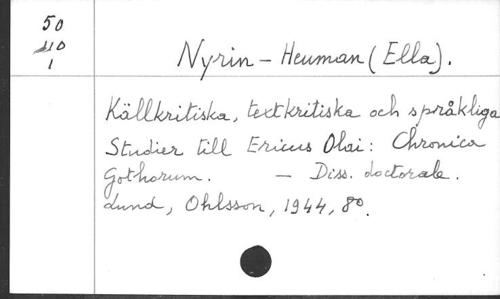 50
110
1
Nyrin-Heuman (Ella).
Källkritiska, textkritiska och språkliga
Studier till Ericus Olai: Chronica
Gothorum. — Diss. doctorale.
Lund, Ohlsson, 1944, 8º.